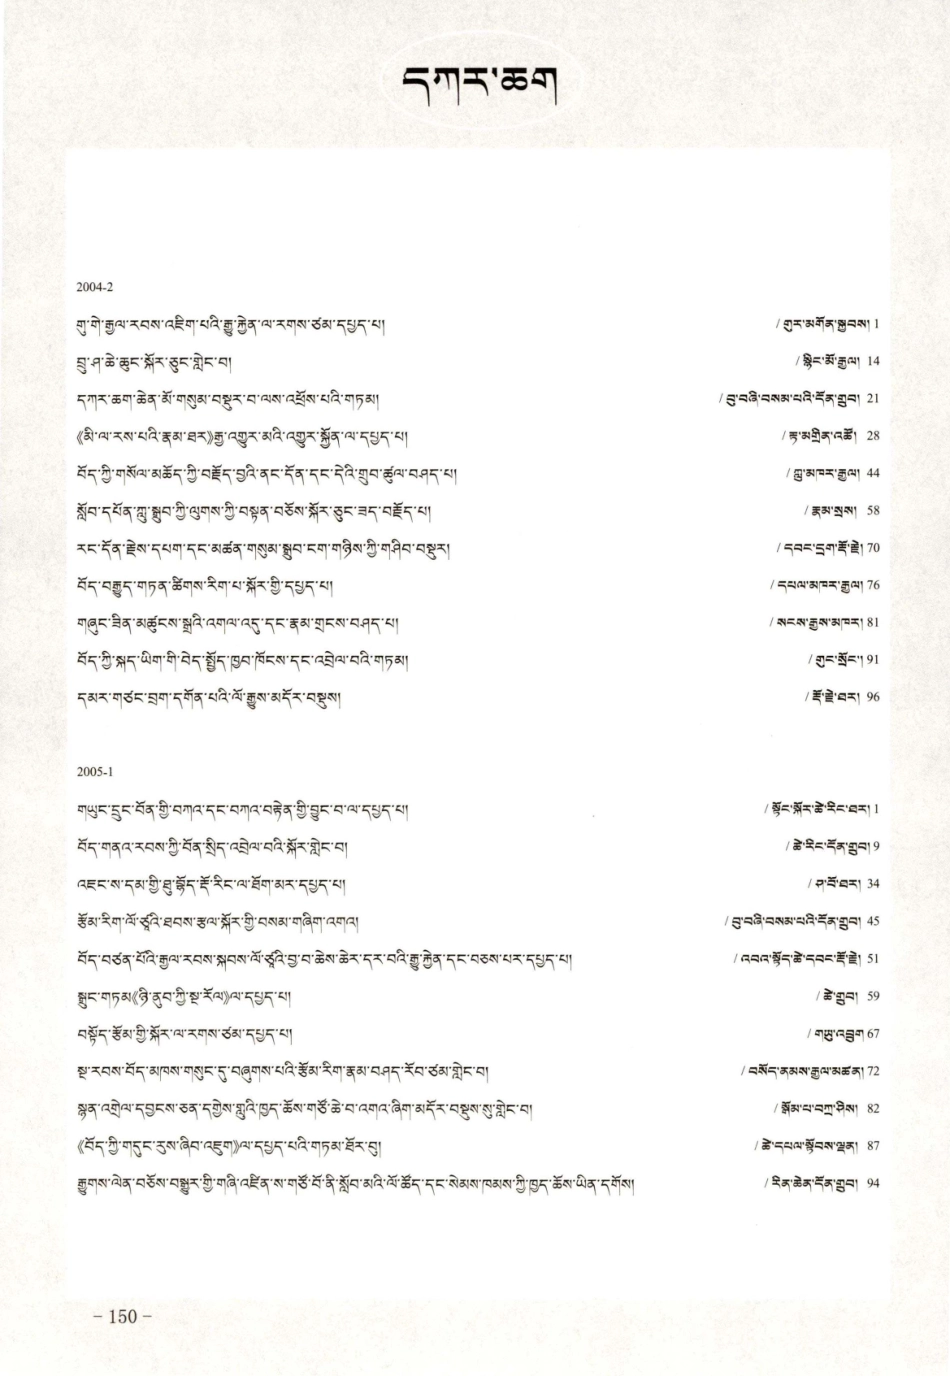 དཀར་ཆག
2004-2
གུ་གེ་རྒྱལ་རབས་འཇིག་པའི་རྒྱུ་རྐྱེན་ལ་རགས་ཙམ་དཔྱད་པ། / གུར་མགོན་སྐྱབས། 1
བྲུ་ཤ་ཆེ་ཆུང་སྐོར་ཅུང་གླེང་བ། / སྙིང་མོ་རྒྱལ། 14
དཀར་ཆག་ཆེན་མོ་གསུམ་བསྡུར་བ་ལས་འཕྲོས་པའི་གཏམ། / བྲུ་བཞི་བསམ་པའི་དོན་གྲུབ། 21
《མི་ལ་རས་པའི་རྣམ་ཐར》རྒྱ་འགྱུར་མའི་འགྱུར་སྐྱོན་ལ་དཔྱད་པ། / རྟ་མགྲིན་འཚོ། 28
བོད་ཀྱི་གསོལ་མཆོད་ཀྱི་བརྗོད་བྱའི་ནང་དོན་དང་དེའི་གྲུབ་ཚུལ་བཤད་པ། / ཀླུ་མཁར་རྒྱལ། 44
སློབ་དཔོན་ཀླུ་སྒྲུབ་ཀྱི་ལུགས་ཀྱི་བསྟན་བཅོས་སྐོར་ཅུང་ཟད་བརྗོད་པ། / རྣམ་སྲས། 58
རང་དོན་རྗེས་དཔག་དང་མཚན་གསུམ་སྒྲུབ་ངག་གཉིས་ཀྱི་གཤིབ་བསྡུར། / དབང་དྲག་རྡོ་རྗེ། 70
བོད་བརྒྱུད་གཏན་ཚིགས་རིག་པ་སྐོར་གྱི་དཔྱད་པ། / དཔལ་མཁར་རྒྱལ། 76
གཞུང་ཟིན་མཚུངས་སྒྲའི་འགལ་འདུ་དང་རྣམ་གྲངས་བཤད་པ། / སངས་རྒྱས་མཁར། 81
བོད་ཀྱི་སྐད་ཡིག་གི་བེད་སྤྱོད་ཁྱབ་ཁོངས་དང་འབྲེལ་བའི་གཏམ། / གུང་སྲོང་། 91
དམར་གཙང་བྲག་དགོན་པའི་ལོ་རྒྱུས་མདོར་བསྡུས། / རྡོ་རྗེ་ཐར། 96
2005-1
གཡུང་དྲུང་བོན་གྱི་བཀའ་དང་བཀའ་བརྟེན་གྱི་བྱུང་བ་ལ་དཔྱད་པ། / སྟོང་སྐོར་ཚེ་རིང་ཐར། 1
བོད་གནའ་རབས་ཀྱི་བོན་སྲིད་འབྲེལ་བའི་སྐོར་གླེང་བ། / ཚེ་རིང་དོན་གྲུབ། 9
འཇང་ས་དམ་གྱི་ཐུ་སྟོད་རྡོ་རིང་ལ་ཐོག་མར་དཔྱད་པ། / ཤ་བོ་ཐར། 34
རྩོམ་རིག་ལོ་ཙཱའི་ཐབས་རྩལ་སྐོར་གྱི་བསམ་གཞིག་འགའ། / བྲུ་བཞི་བསམ་པའི་དོན་གྲུབ། 45
བོད་བཙན་པོའི་རྒྱལ་རབས་སྐབས་ལོ་ཙཱའི་བྱ་བ་ཆེས་ཆེར་དར་བའི་རྒྱུ་རྐྱེན་དང་བཅས་པར་དཔྱད་པ། / འབའ་སྟོད་ཚེ་དབང་རྡོ་རྗེ། 51
སྒྲུང་གཏམ《ཉི་ནུབ་ཀྱི་སྔ་རོལ》ལ་དཔྱད་པ། / ཚེ་གྲུབ། 59
བསྟོད་རྩོམ་གྱི་སྐོར་ལ་རགས་ཙམ་དཔྱད་པ། / གཡུ་འབྲུག 67
སྔ་རབས་བོད་མཁས་གསུང་དུ་བཞུགས་པའི་རྩོམ་རིག་རྣམ་བཤད་རོབ་ཙམ་གླེང་བ། / བསོད་ནམས་རྒྱལ་མཚན། 72
སྙན་འགྲེལ་དབྱངས་ཅན་དགྱེས་གླུའི་ཁྱད་ཆོས་གཙོ་ཆེ་བ་འགའ་ཞིག་མདོར་བསྡུས་སུ་གླེང་བ། / སྒོམ་པ་བཀྲ་ཤིས། 82
《བོད་ཀྱི་གདུང་རུས་ཞིབ་འཇུག》ལ་དཔྱད་པའི་གཏམ་ཐོར་བུ། / ཚེ་དཔལ་སྟོབས་ལྡན། 87
རྒྱུགས་ལེན་བཅོས་བསྒྱུར་གྱི་གཞི་འཛིན་ས་གཙོ་བོ་ནི་སློབ་མའི་ལོ་ཚོད་དང་སེམས་ཁམས་ཀྱི་ཁྱད་ཆོས་ཡིན་དགོས། / རིན་ཆེན་དོན་གྲུབ། 94
– 150 –